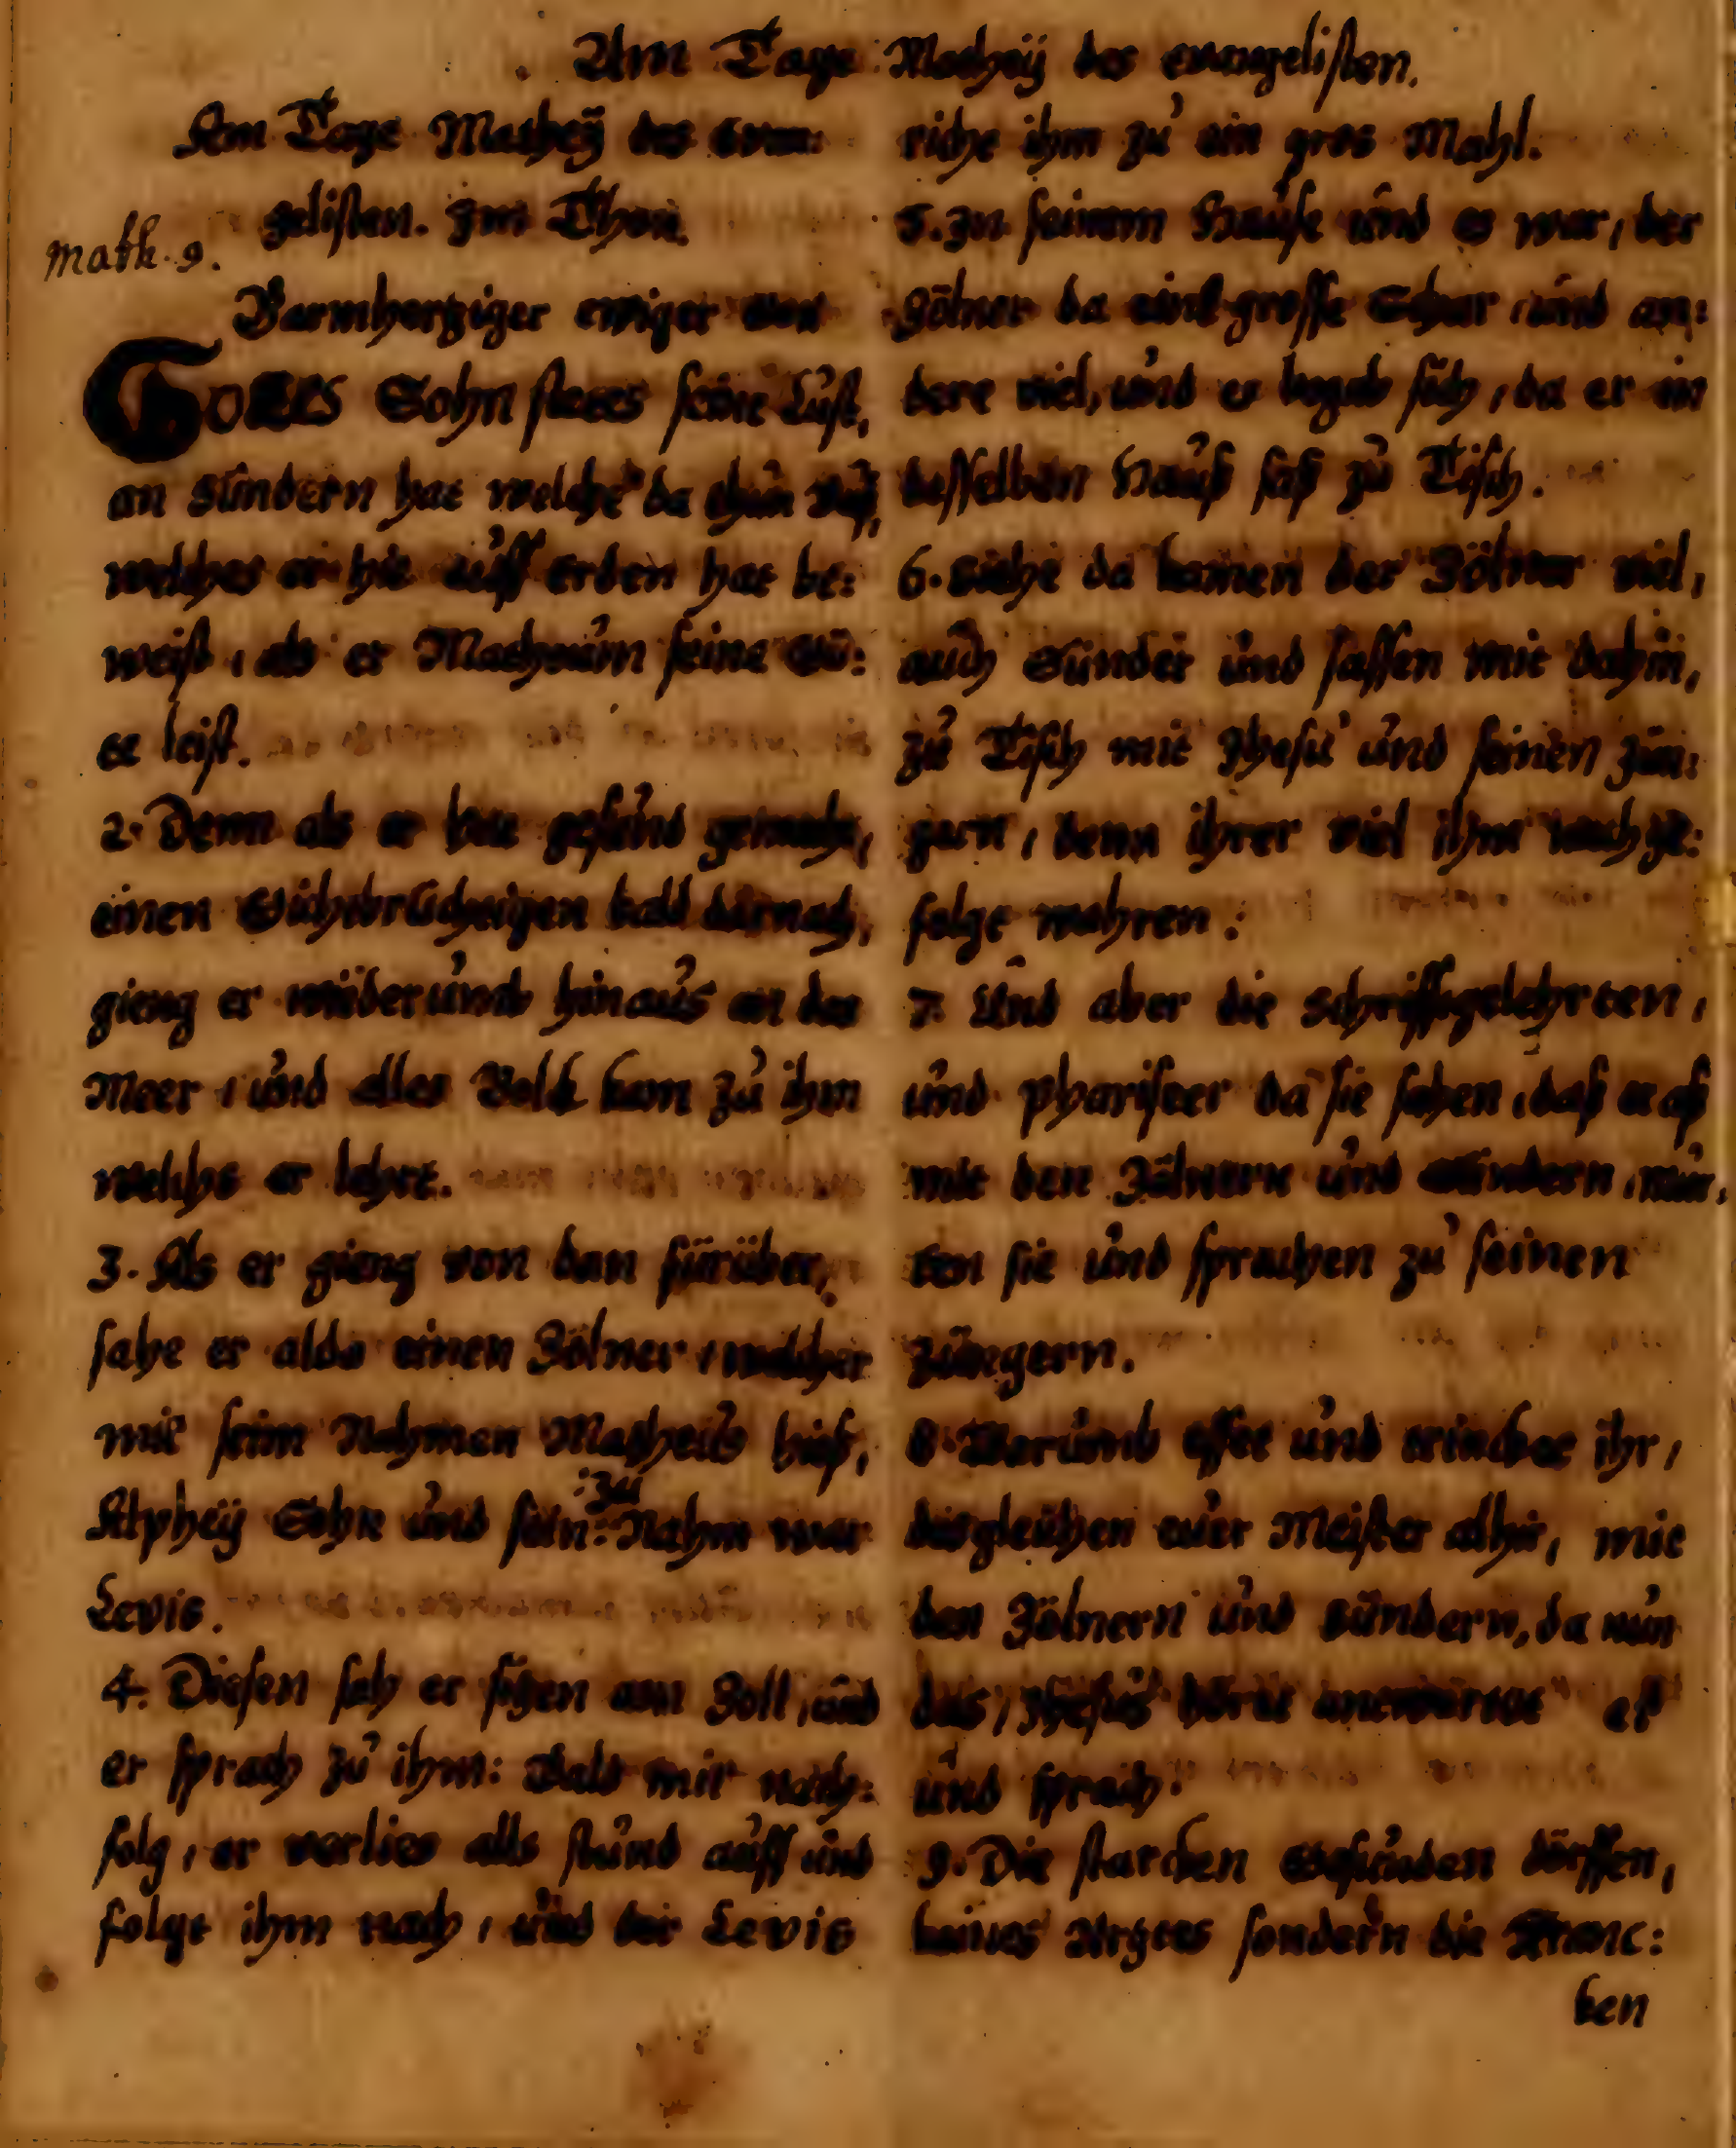 Am Tage Mathei des evangelisten.
Am Tage Matheÿ des Evan:
gelisten. Im Thon.
Math. 9.
Barmhertziger ewiger Gott
GOTTES Sohn stetes seine Lust,
an Sündern hat welche da thun Buß,
welches er hie auff erden hat be:
weist, als er Matheum seine Gü:
te leist.
2. Denn als er hat gesund gemacht,
einen Gichtbrüchtigen bald darnach,
gieng er widerumb hinaus an das
Meer, und alles Volck kam zu ihm
welchs er lehrt.
3. Als er gieng von dan fürüber,
sahe er alda einen Zölner, welcher
mit seim Nahmen Matheus hies,
Alpheÿ Sohn und sein :zu: Nahm war
Levis.
4. Diesen sah er sitzen am Zoll, und
er sprach zu ihm: Bald mir nach:
folg, er verlies alls stund auff und
folgt ihm nach, und der Levis
richt ihm zu ein gros Mahl.
5. In seinem Hause und es war, der
Zölner da eine grosse Schar, und an:
dere viel, und es begab sich, da er in
desselben Hauß saß zu Tisch.
6. Siehe da kamen der Zölner viel,
auch Sünder und sassen mit dahin,
zu Tisch mit Jhesu und seinen Jün:
gern, denn ihrer viel ihm nachge:
folgt wahren:
7. Und aber die Schrifftgelehrten,
und Phariseer da sie sahen, daß er aß
mit den Zölnern und Sündern, mur,
ten sie und sprachen zu seinen
Jüngern.
8. Warumb esset und trincket ihr,
desgleichen euer Meister alhir, mit
den Zölnern und Sündern, da nun
das, Jhesus hörte antwortet er
und sprach:
9. Die starcken Gesunden dörffen,
keines Artztes sondern die Kranc:
ken